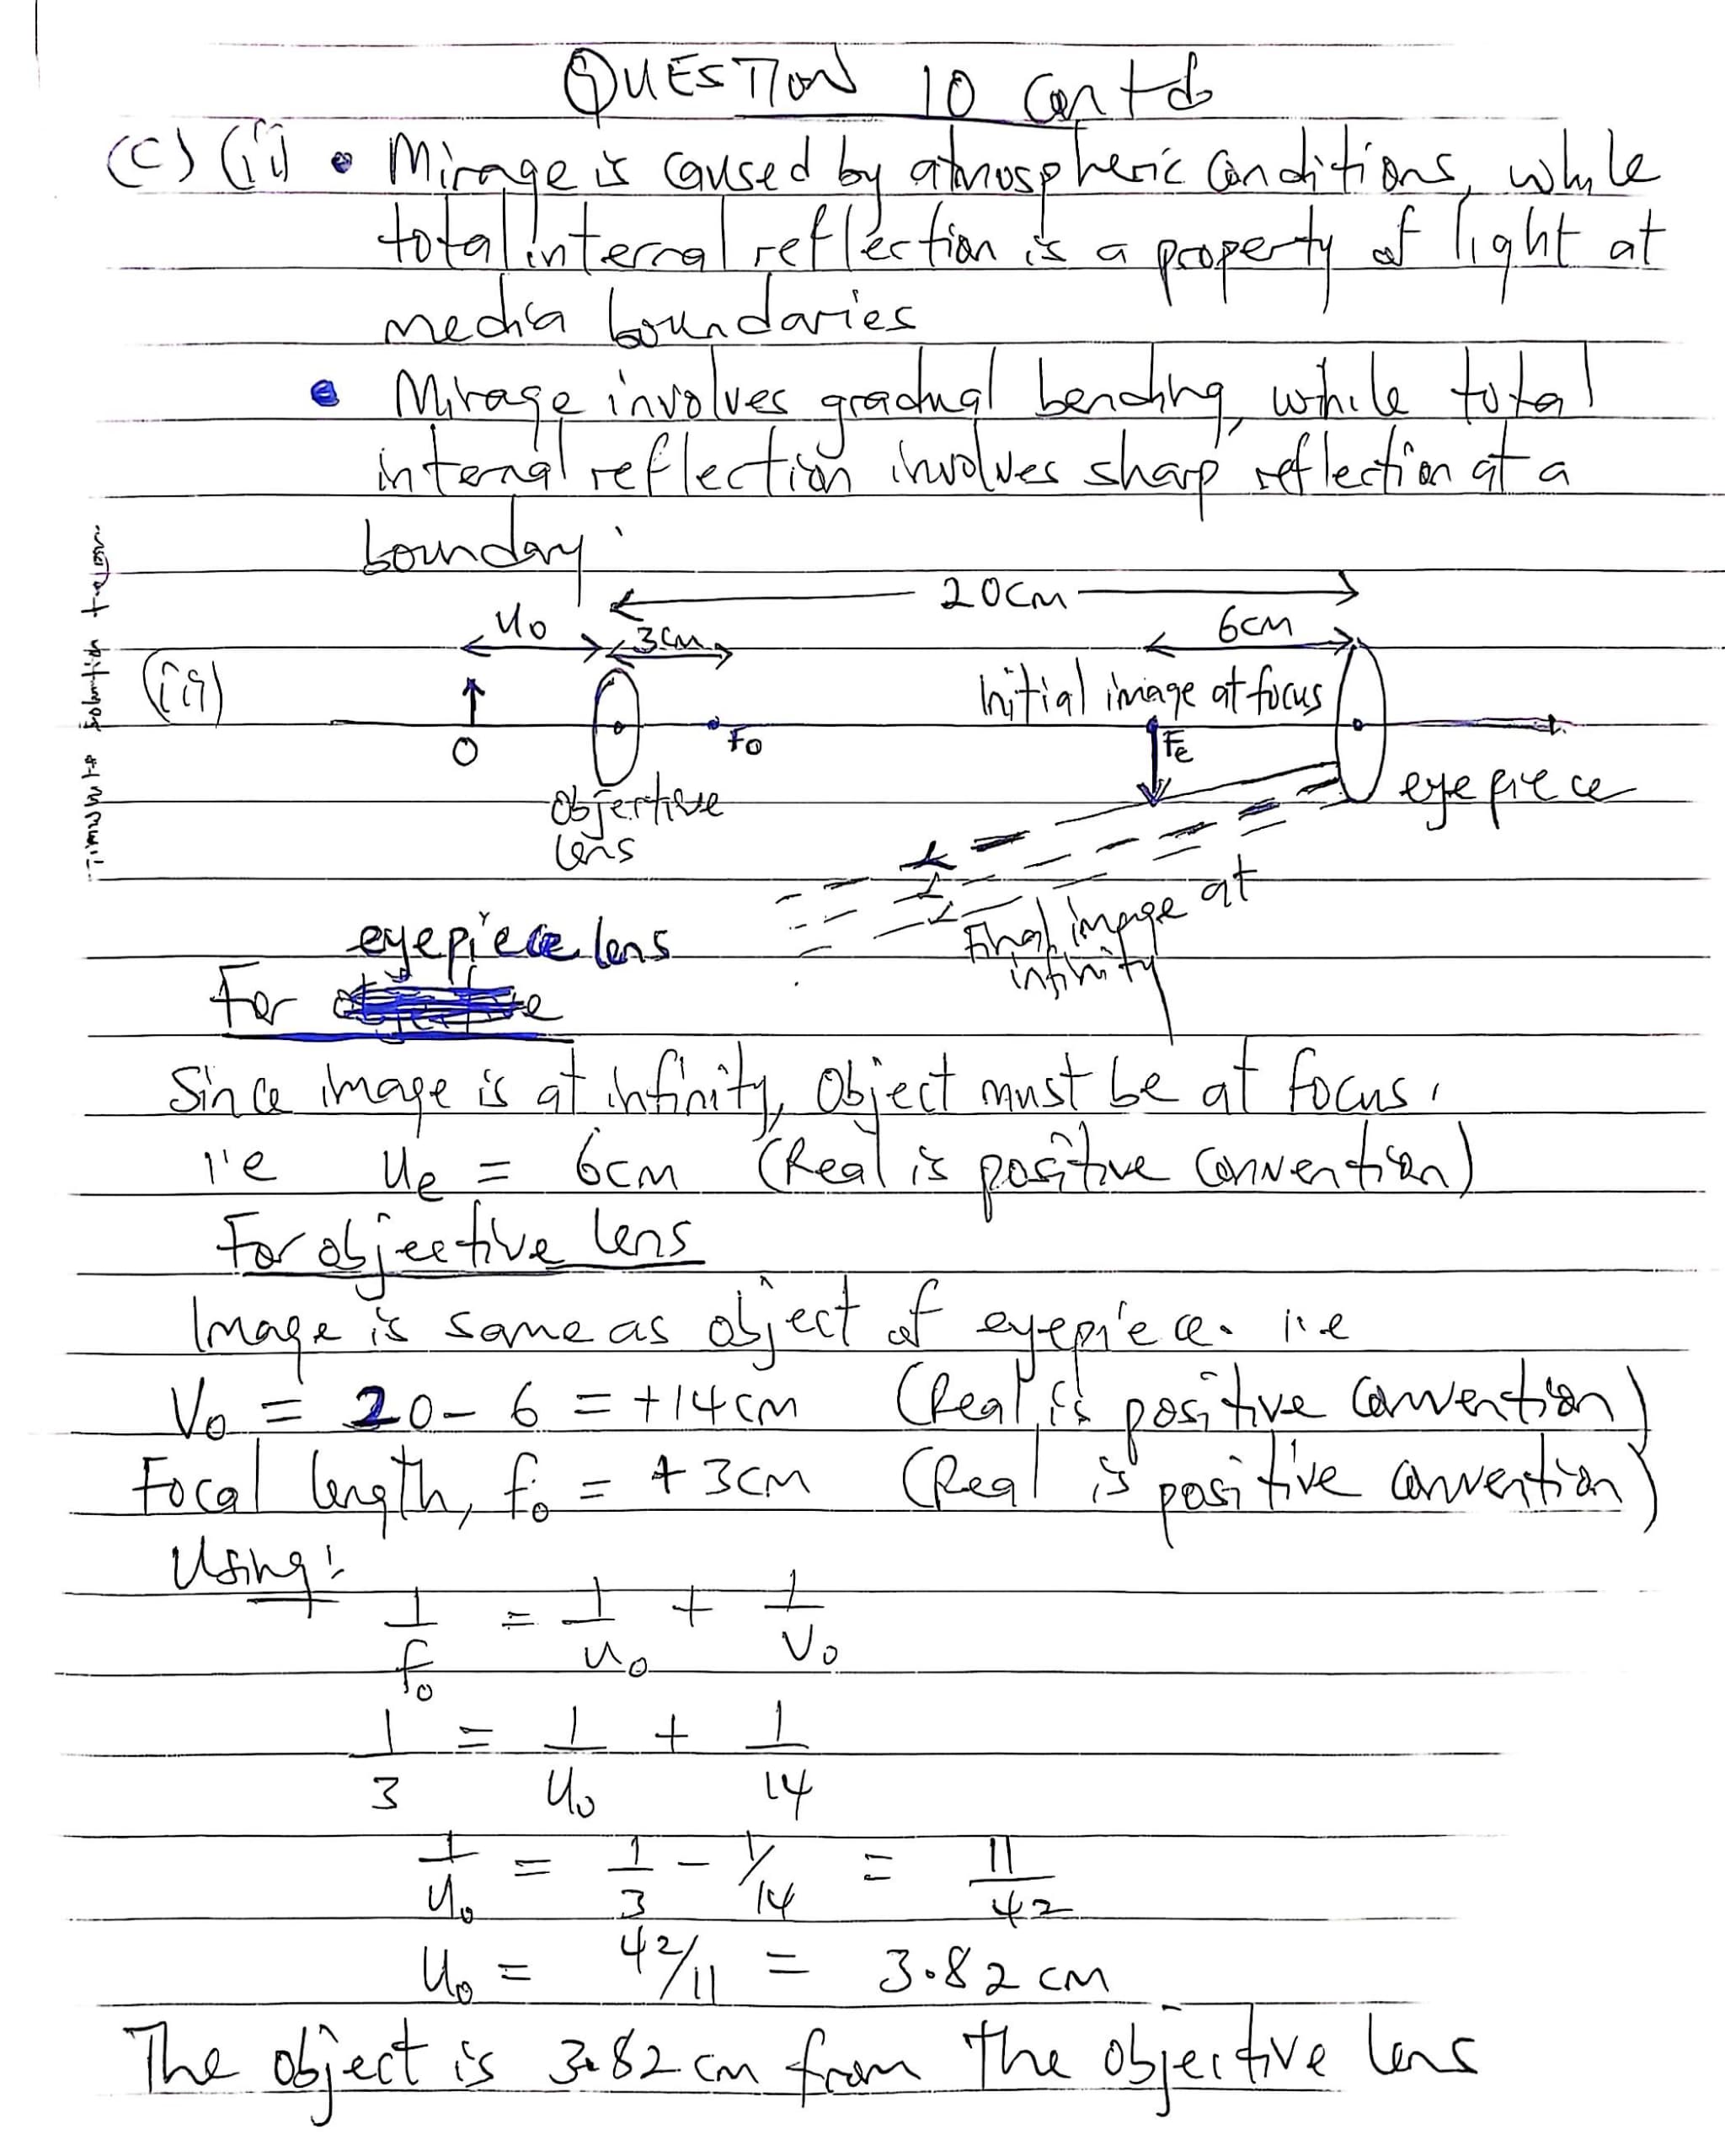 QUESTION 10 contd
(c) (ii) • Mirage is caused by atmospheric conditions, while
total internal reflection is a property of light at
media boundaries
• Mirage involves gradual bending, while total
internal reflection involves sharp reflection at a
boundary.
20cm
u₀ 3cm 6cm
(iii) Initial image at focus
O F₀ Fe
objective lens
eyepiece
Final image at
infinity
solution team
eyepiece lens
For
Since image is at infinity, object must be at focus.
i.e ue = 6cm (Real is positive convention)
For objective lens
Image is same as object of eyepiece. i.e
V₀ = 20 - 6 = +14cm (Real is positive convention)
Focal length, f₀ = +3cm (Real is positive convention)
Using:
1/f₀ = 1/u₀ + 1/V₀
1/3 = 1/u₀ + 1/14
1/u₀ = 1/3 - 1/14 = 11/42
u₀ = 42/11 = 3.82 cm
The object is 3.82 cm from the objective lens